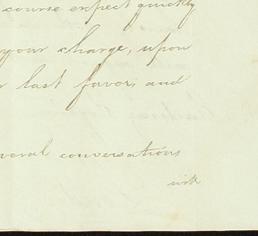 course expect quickly
your charge, upon
last favor, and
several conversations
with